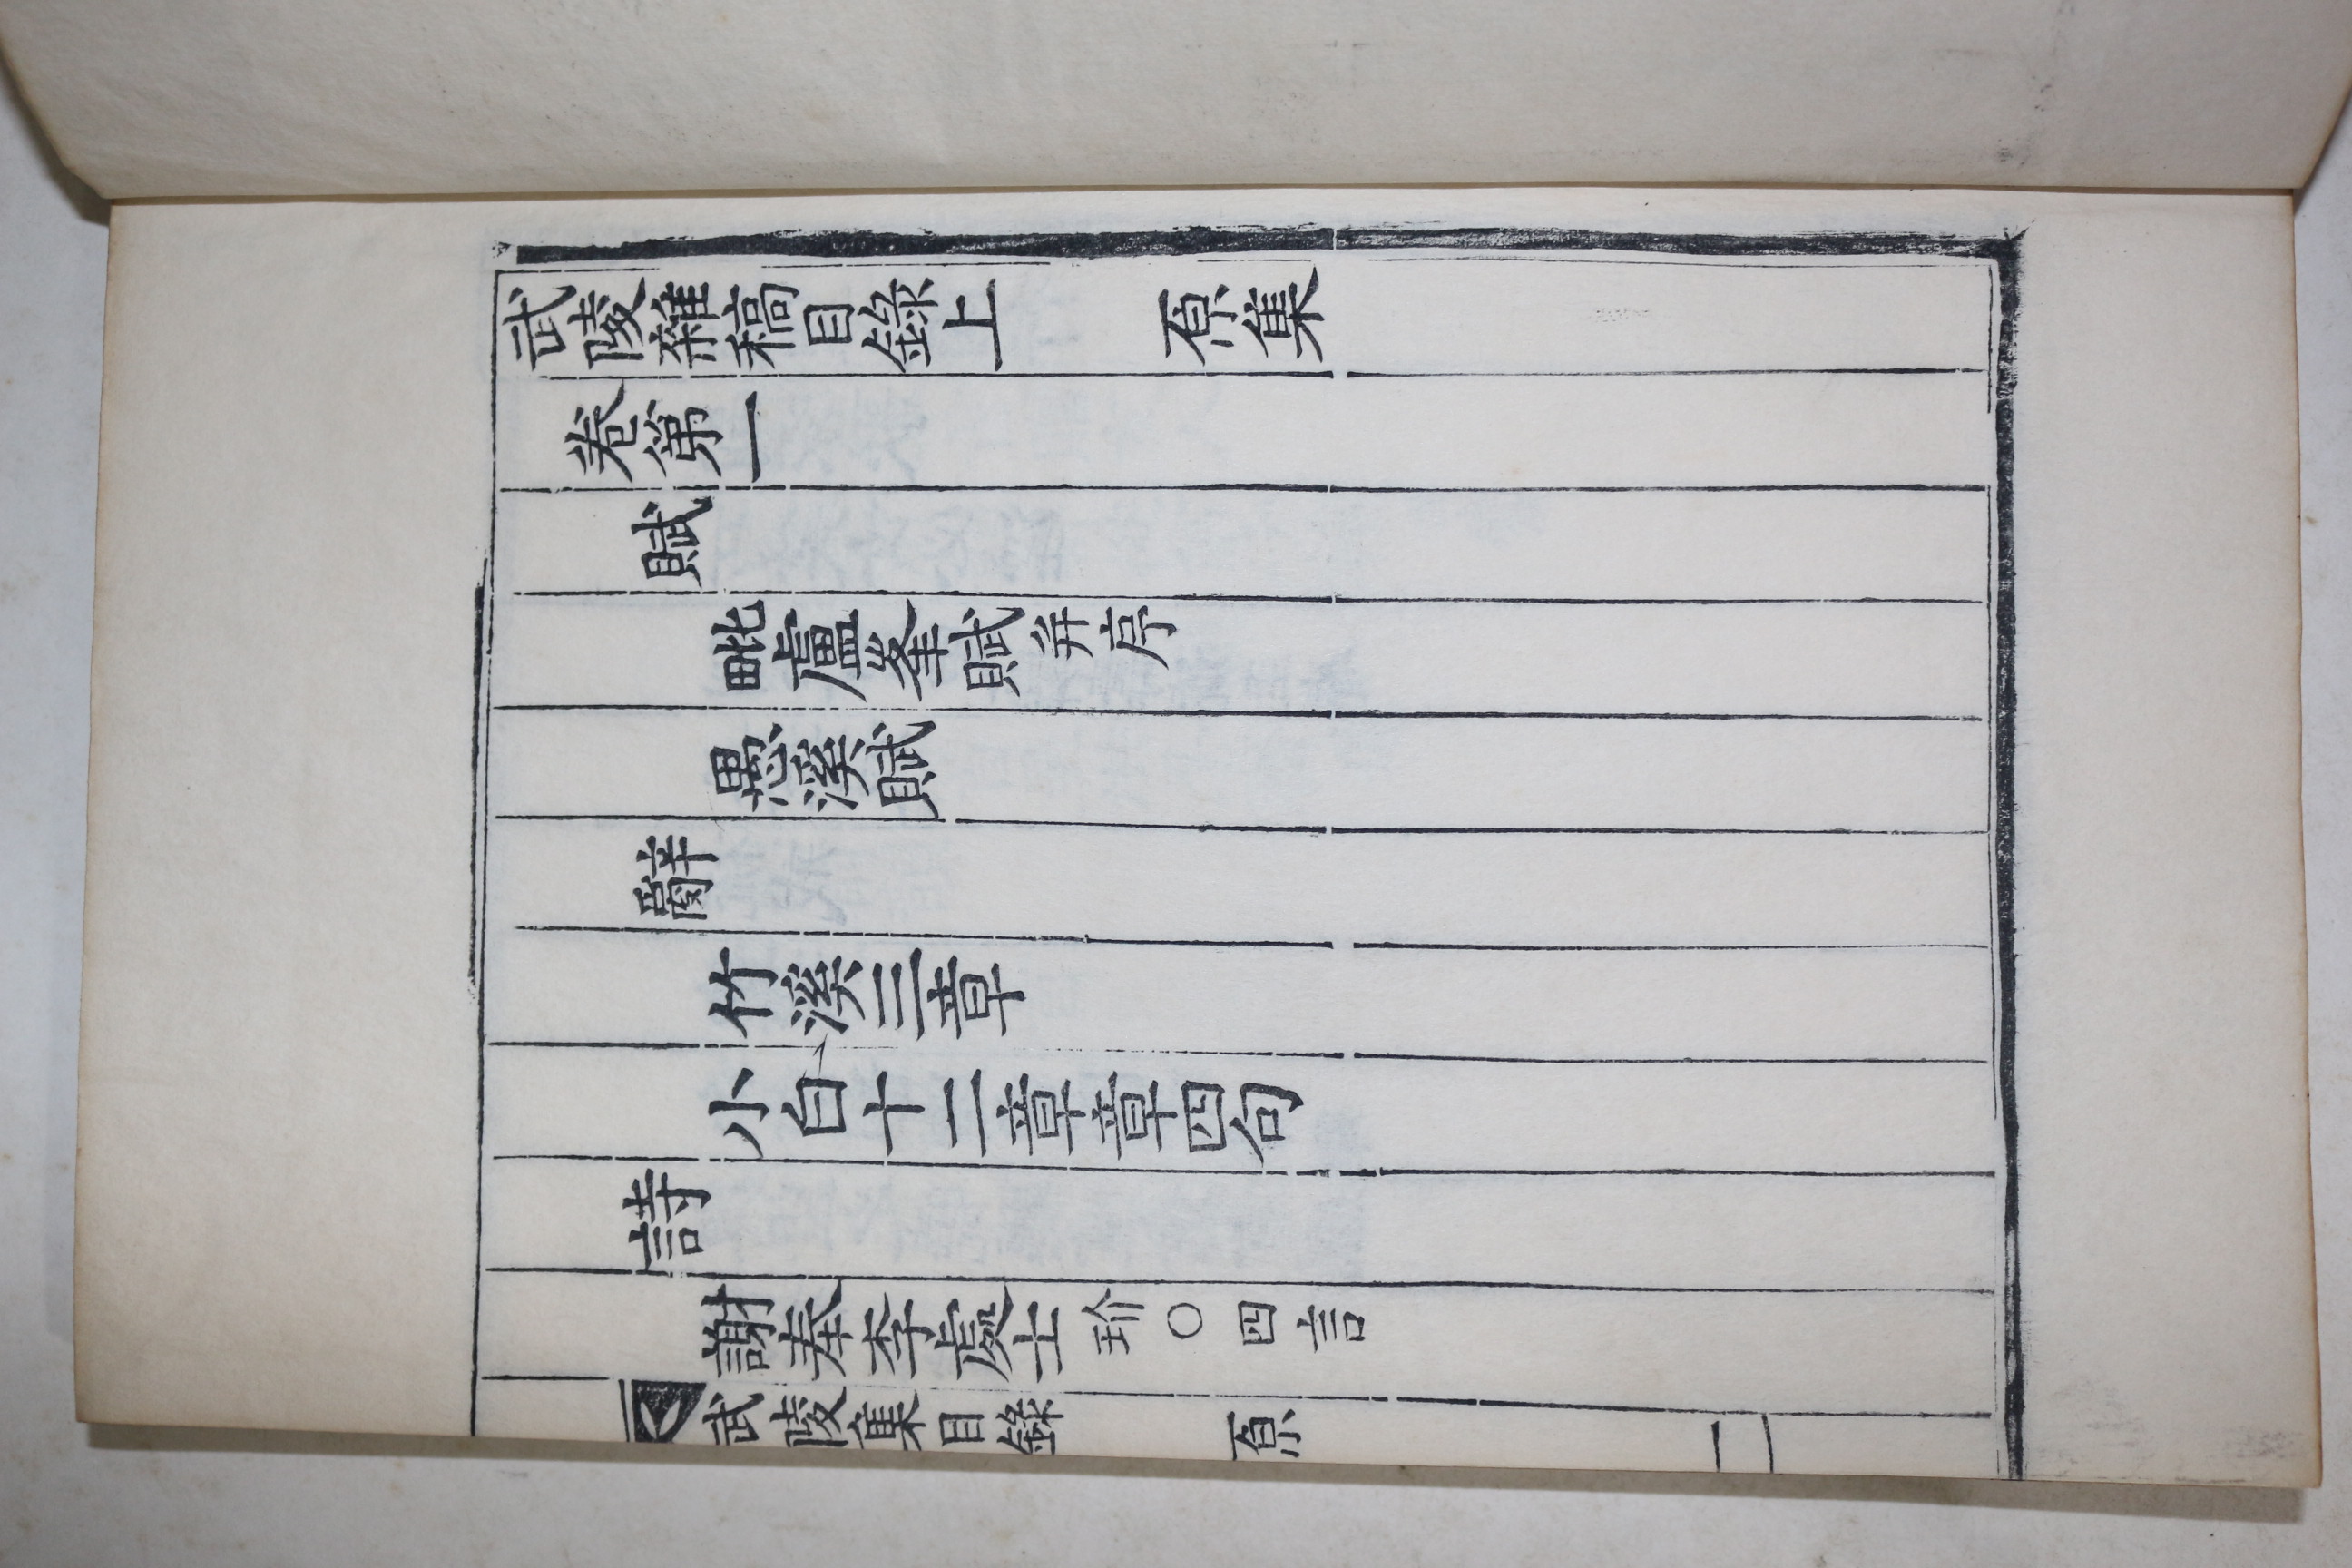 武陵雜稿目錄上　原集
卷第一
賦
毗盧峯賦并序
愚溪賦
辭
竹溪三章
小白十二章章四句
詩
謝奉李處士玠○四言
武陵集目錄　原　一